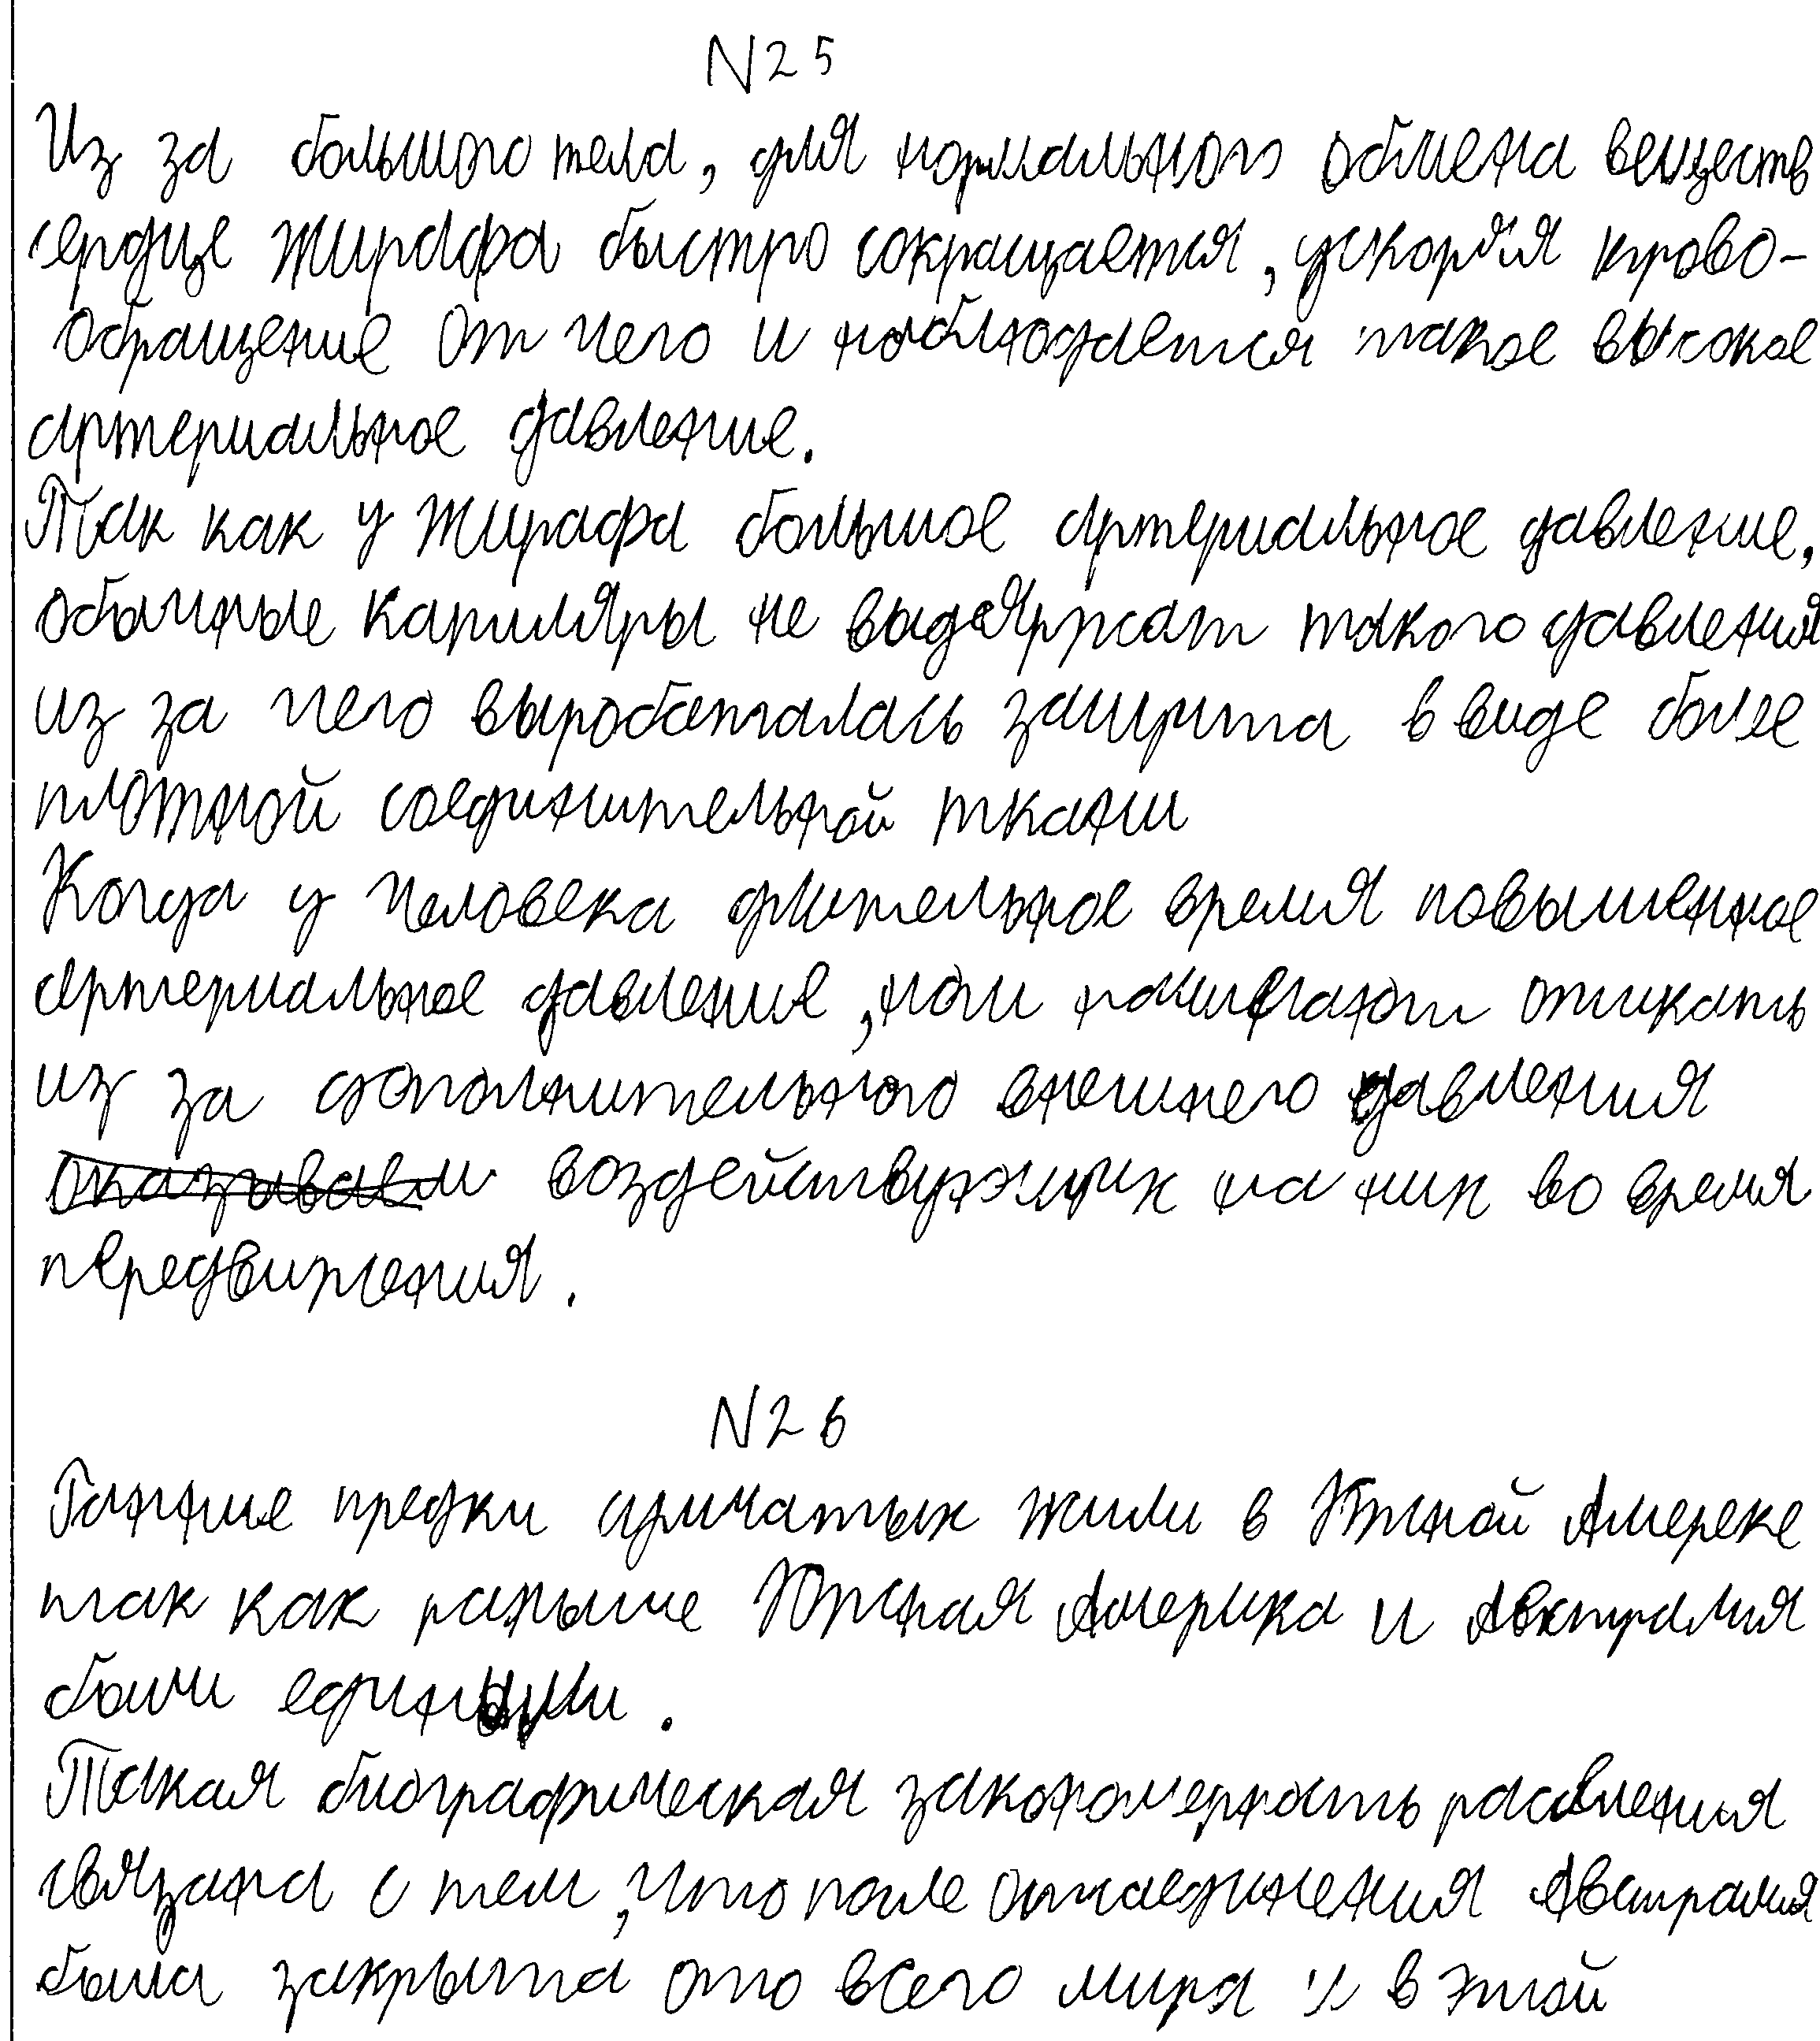 N25
Из за большого тела, для нормального обмена веществ
сердце жирафа быстро сокращается, ускоряя крово-
обращение от чего и наблюдается такое высокое
артериальное давление.
Так как у жирафа большое артериальное давление,
обычные капиляры не выдержат такого давления
из за чего выработалась защита в виде более
плотной соединительной ткани
Когда у человека длительное время повышенное
артериальное давление, ноги начинают отикать
из за дополнительного внешнего давления
воздействующих на них во время
передвижения.
N26
Ранние предки сумчатых жили в Южной Амереке
так как раньше Южная Америка и Австралия
были едиными.
Такая биографическая закономерность расселения
связана с тем, что после отсоединения Австралия
была закрыта ото всего мира и в этой